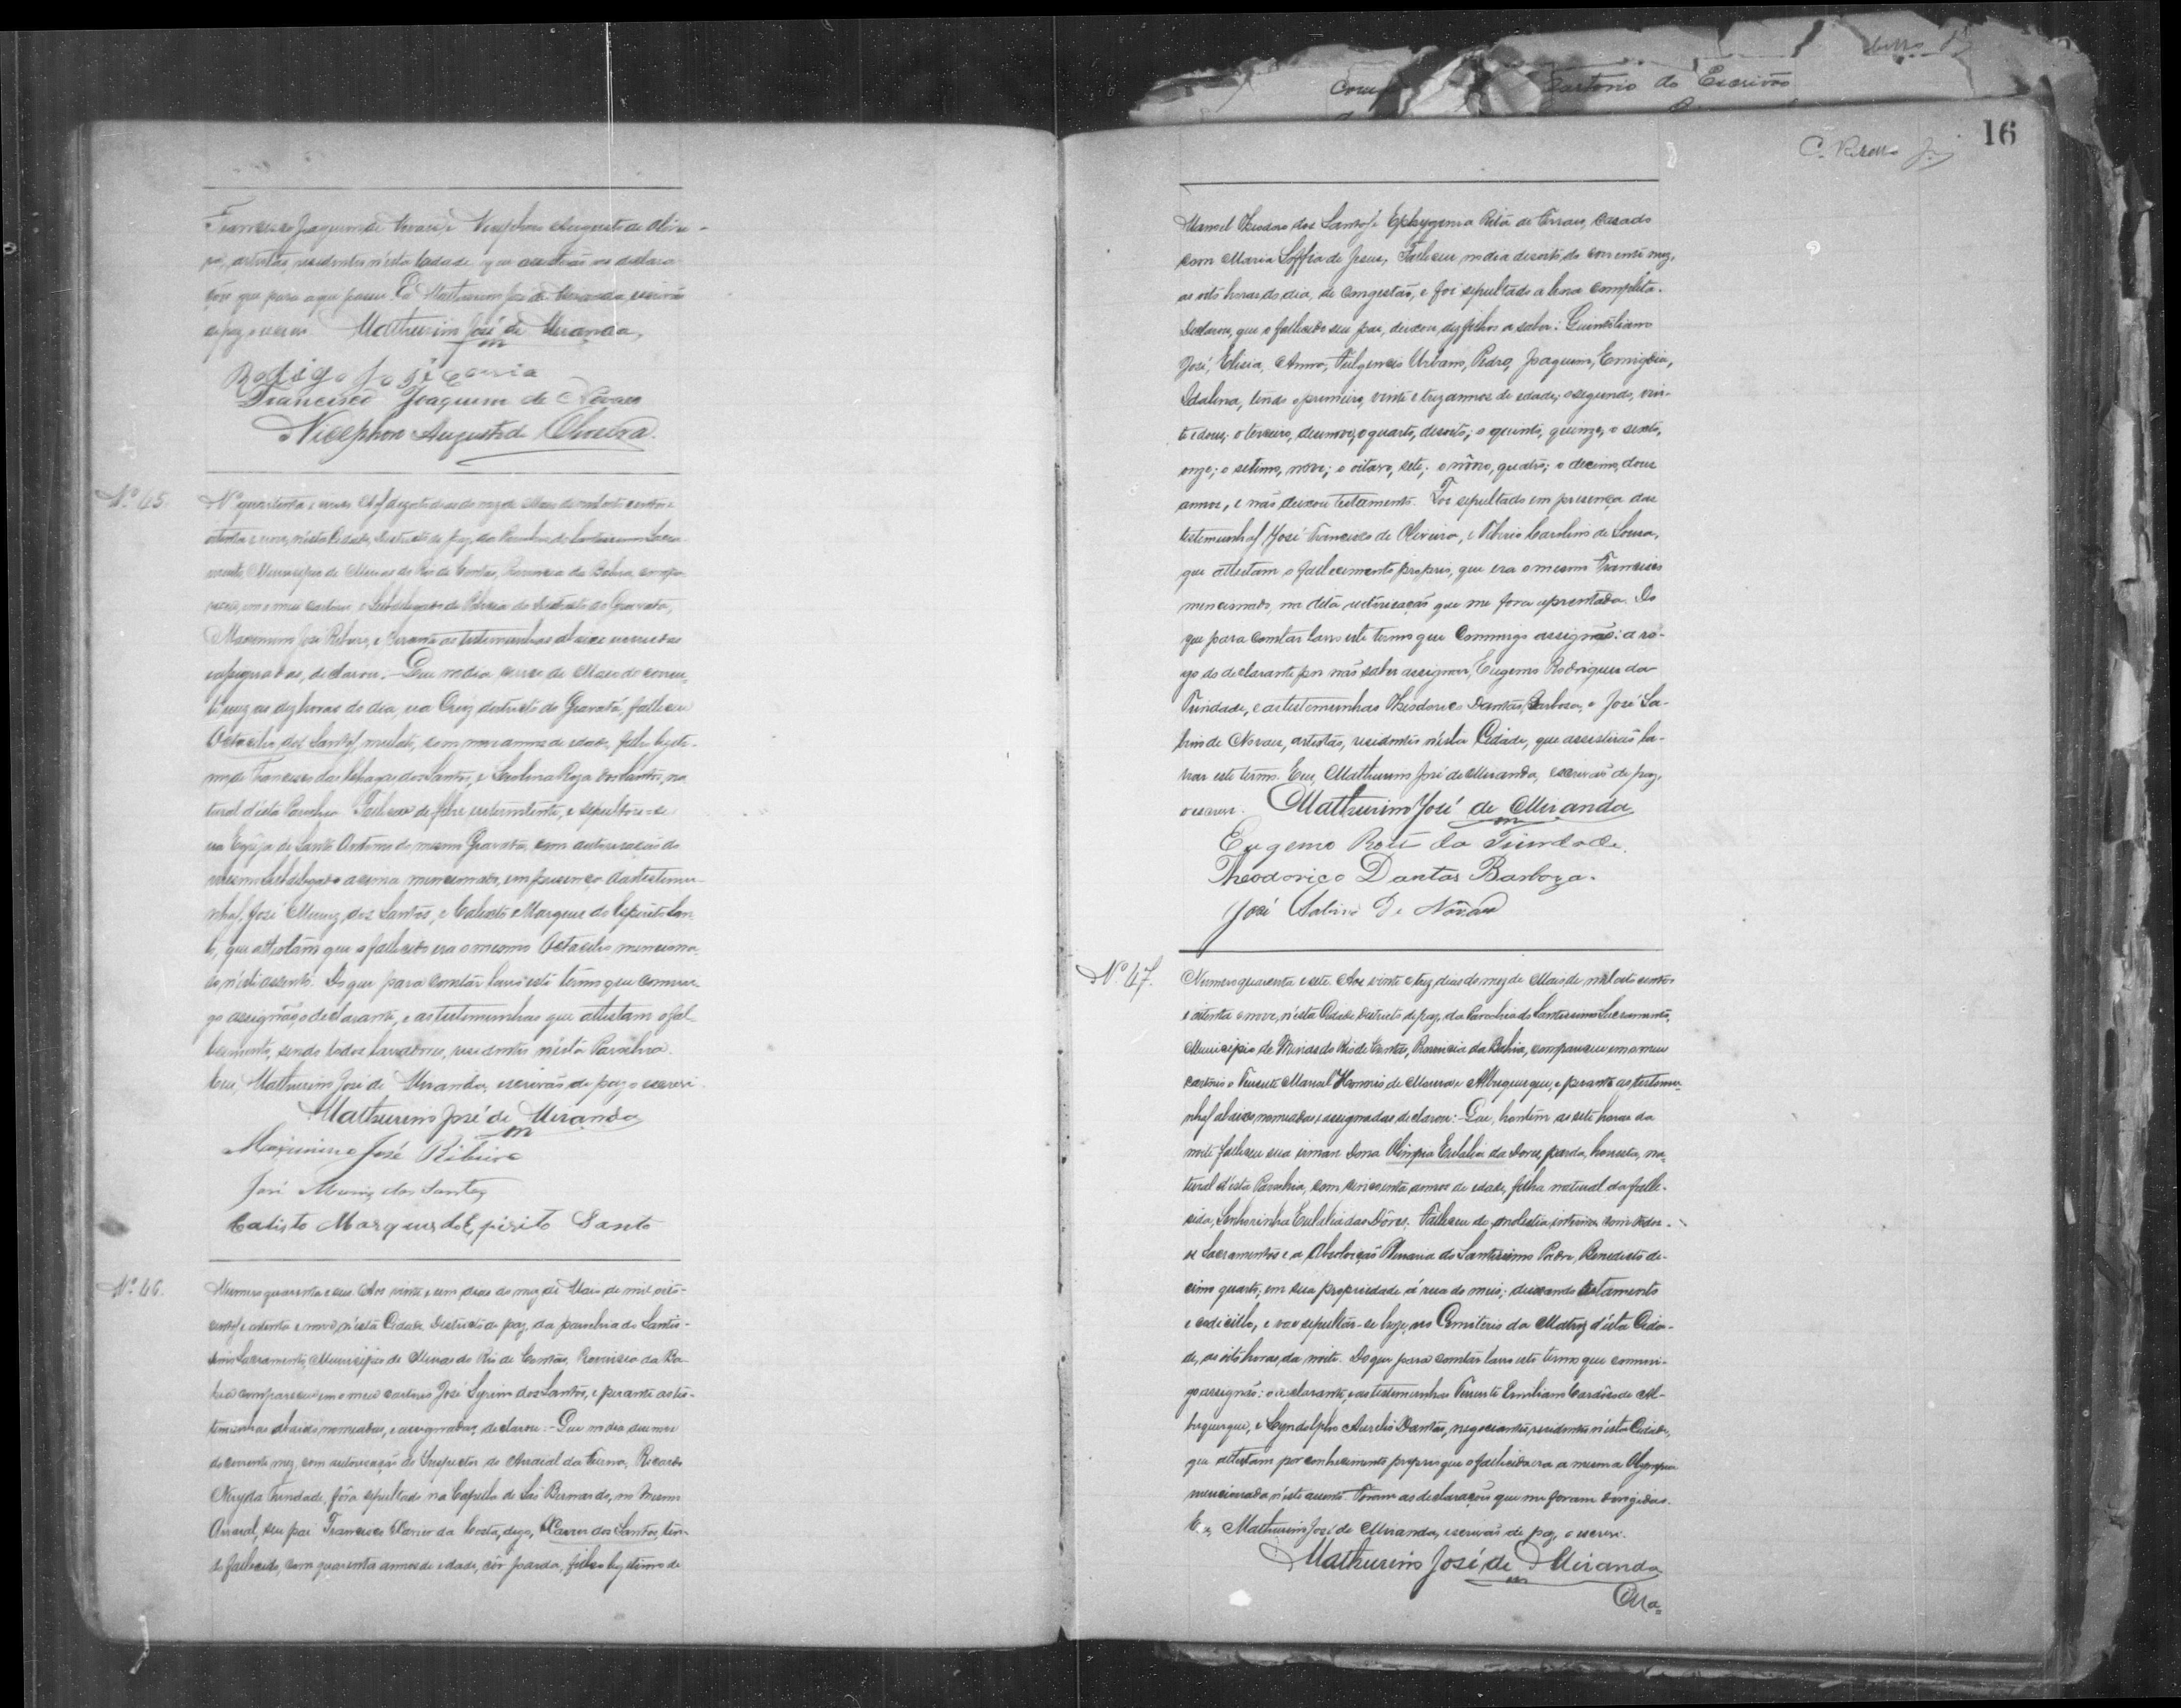 Francisco Joaquim de Novaes, e Nicephoro Augusto de Olivei-
ra, artistas, residentes n'esta Cidade, que assistirão as declara-
ções que para aqui passei. Eu Mathurino José de Miranda, escrivão
de paz, o escrevi. Mathurino José de Miranda,
Rodrigo José Correia
Francisco Joaquim de Novaes
Nicephoro Augusto de Oliveira.
Nº 45
Nº quarenta e cinco. Aos dezoito dias do mez de Maio de mil oito centos e
oitenta e nove, n'esta Cidade, Destricto de paz, da Parochia do Santissimo Sacra-
mento, Municipio de Minas do Rio de Contas, Provincia da Bahia, compa-
receu em o meu cartorio, o Subdelegado de Policia do Destricto do Gravatá,
Maximino José Ribeiro, e perante as testemunhas abaixo nomeadas
e assignadas, declarou: Que no dia de Maio do corren-
te mez as dez horas do dia, na Cruz, destricto do Gravatá, falleceu
Octacilio dos Santos, mulato, com nove annos de edade, filho legiti-
mo de Francisco das Chagas dos Santos, e Carolina Roza dos Santos, na-
tural d'esta Parochia. Falleceu de febre intermitente, e sepultou-se
na Egreja de Santo Antonio do mesmo Gravatá, com autorisação do
mesmo Subdelegado acima mencionado, em presença das testemu-
nhas, José Muniz dos Santos, e Calisto Marques do Espirito San-
to, que attestam que o fallecido era o mesmo Octacilio menciona-
do n'este assento. Do que para constar lavrei este termo que commi-
go assignão, o declarante, e as testemunhas que attestam o fal-
lecimento, sendo todos lavradores, residentes n'esta Parochia.
Eu, Mathurino José de Miranda, escrivão de paz, o escrevi.
Mathurino José de Miranda
Maximino José Ribeiro
José Muniz dos Santos
Calisto Marques do Epirito Santo
Nº 46.
Numero quarenta e seis. Aos vinte e um dias do mez de Maio de mil oito-
centos e oitenta e nove, n'esta Cidade, Destricto de paz, da parochia do Santis-
simo Sacramento, Municipio de Minas do Rio de Contas, Provincia da Ba-
hia compareceu em o meu cartorio, José dos Santos, e perante as tes-
temunhas abaixo nomeadas, e assignadas, declarou: - Que no dia desenove
do corrente mez, com autorisação do Inspector do Arraial da Furna, Ricardo
Nery da Trindade, fôra sepultado na Capella de São Bernardo, no mesmo
Arraial, seu pai Francisco Xavier da Costa, digo, Xavier dos Santos, ten-
do fallecido, com quarenta annos de edade, côr parda, filho legitimo de
16
C. Bravo Jr.
Cartorio do Escrivão
Manoel Theodoro dos Santos, e Ephygenia Rita de, casado
com Maria Soffia de Jesus, Falleceu no dia desoito do corrente mez,
as oito horas do dia, de congestão, e foi sepultado a hora completa.
Declarou, que o fallecido seu pai, deixou dez filhos a saber: Quintiliano
José, Elisia, Anna, Fulgencio Urbano, Pedro, Joaquim, Emigdia,
Idalina, tendo o primeiro, vinte e trez annos de edade; o segundo, vin-
te e dous; o terceiro, desenove; o quarto, desoito; o quinto, quinze; o sexto,
onze; o setimo, nove; o oitavo, sete; o nôno, quatro; o decimo, dous
annos, e não deixou testamento. Foi sepultado em presença das
testemunhas José Francisco de Oliveira, e Tiberio Carolino de Sousa,
que attestam o fallecimento proprio, que era o mesmo Francisco
mencionado, na dita autorisação que me fora aprentada. Do
que para constar lavro este termo que commigo assignão: a ro-
go do declarante por não saber assignar, Eugenio Rodrigues da
Trindade, e as testemunhas Theodorico Dantas Barbosa, e José Sa-
bino de Novaes, artistas, residentes n'esta Cidade, que assistirão la-
vrar este termo. Eu, Mathurino José de Miranda, escrivão de paz,
o escrevi. Mathurino José de Miranda
Eugenio Roiz da Trindade.
Theodorico Dantas Barboza.
José Sabino De Novaes
Nº 47.
Numero quarenta e sete. Aos vinte e trez dias do mez de Maio, de mil oito centos
e oitenta e nove, n'esta Cidade Destricto de paz, da Parochia do Santissimo Sacramento,
Municipio de Minas do Rio de Contas, Provincia da Bahia, compareceu em o meu
cartorio o Tenente Manoel de Moura e Albuquerque, e perante as testemu-
nhas abaixo nomeadas e assignadas declarou: - Que, hontem as sete horas da
noite falleceu sua irman Dona Olimpia Eulalia das Dores, parda, honesta, na-
tural d'esta Parochia, com cincoenta annos de edade, filha natural da falle-
cida, Senhorinha Eulalia das Dôres. Falleceu de molestia interna com todos
os Sacramentos e a Absolvição Plenaria do Santissimo Padre, Benedicto de-
cimo quarto, em sua propriedade á rua do meio; deixando testamento
e codicillo, e vae sepultar-se hoje, no Cemiterio da Matriz d'esta Cida-
de, as oito horas, da noite. Do que para constar lavro este termo que commi-
go assignão: o declarante, e as testemunhas Tenente Emiliano Cardoso de Al-
buquerque, e Lyndolpho Aurelio Dantas, negociantes, residentes n'esta Cidade,
que attestam por conhecimento proprio que a fallecida era a mesma Olympia
mencionada n'este assento. Foram as declarações que me foram dirigidas.
Eu, Mathurino José de Miranda, escrivão de paz, o escrevi.
Mathurino José de Miranda
Ma-